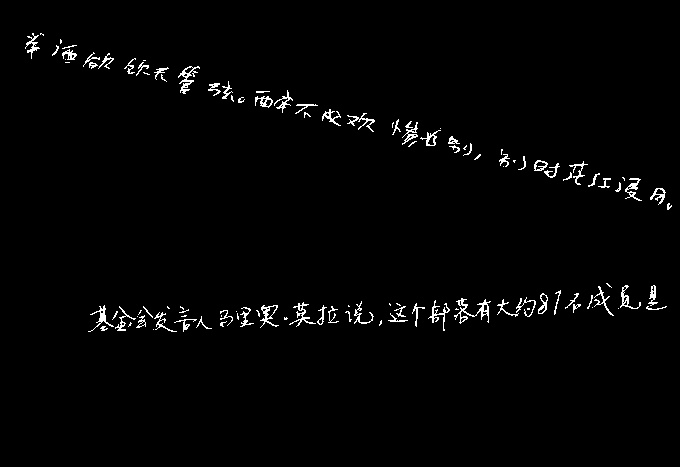 举酒欲饮无管弦。醉不成欢惨将别，别时茫江浸月。
基金会发言人马里奥·莫拉说，这个部落有大约87名成员是